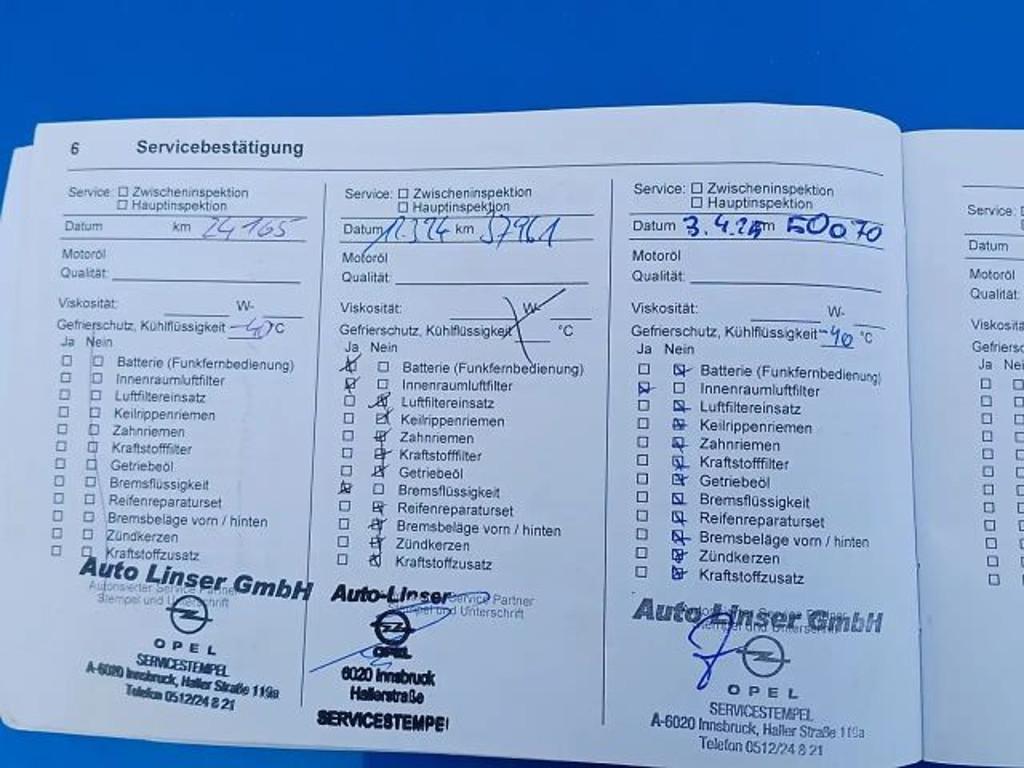 6 Servicebestätigung
Service: Zwischeninspektion
Hauptinspektion
Datum km 24165
Motoröl
Qualität:
Viskosität: W-
Gefrierschutz, Kühlflüssigkeit -40 °C
Ja Nein
Batterie (Funkfernbedienung)
Innenraumluftfilter
Luftfiltereinsatz
Keilrippenriemen
Zahnriemen
Kraftstofffilter
Getriebeöl
Bremsflüssigkeit
Reifenreparaturset
Bremsbeläge vorn / hinten
Zündkerzen
Kraftstoffzusatz
Auto Linser GmbH
Autorisierter Service Partner
Stempel und Unterschrift
OPEL
SERVICESTEMPEL
A-6020 Innsbruck, Haller Straße 119a
Telefon 0512/24 8 21
Service: Zwischeninspektion
Hauptinspektion
Datum km 37961
Motoröl
Qualität:
Viskosität: W-
Gefrierschutz, Kühlflüssigkeit °C
Ja Nein
Batterie (Funkfernbedienung)
Innenraumluftfilter
Luftfiltereinsatz
Keilrippenriemen
Zahnriemen
Kraftstofffilter
Getriebeöl
Bremsflüssigkeit
Reifenreparaturset
Bremsbeläge vorn / hinten
Zündkerzen
Kraftstoffzusatz
Auto-Linser
Service Partner
Stempel und Unterschrift
OPEL
6020 Innsbruck
Hallerstraße
SERVICESTEMPEL
Service: Zwischeninspektion
Hauptinspektion
Datum 3.4.25 km 50070
Motoröl
Qualität:
Viskosität: W-
Gefrierschutz, Kühlflüssigkeit -40 °C
Ja Nein
Batterie (Funkfernbedienung)
Innenraumluftfilter
Luftfiltereinsatz
Keilrippenriemen
Zahnriemen
Kraftstofffilter
Getriebeöl
Bremsflüssigkeit
Reifenreparaturset
Bremsbeläge vorn / hinten
Zündkerzen
Kraftstoffzusatz
Auto Linser GmbH
OPEL
SERVICESTEMPEL
A-6020 Innsbruck, Haller Straße 119a
Telefon 0512/24 8 21
Service:
Datum
Motoröl
Qualität:
Viskositä
Gefriersc
Ja Nei